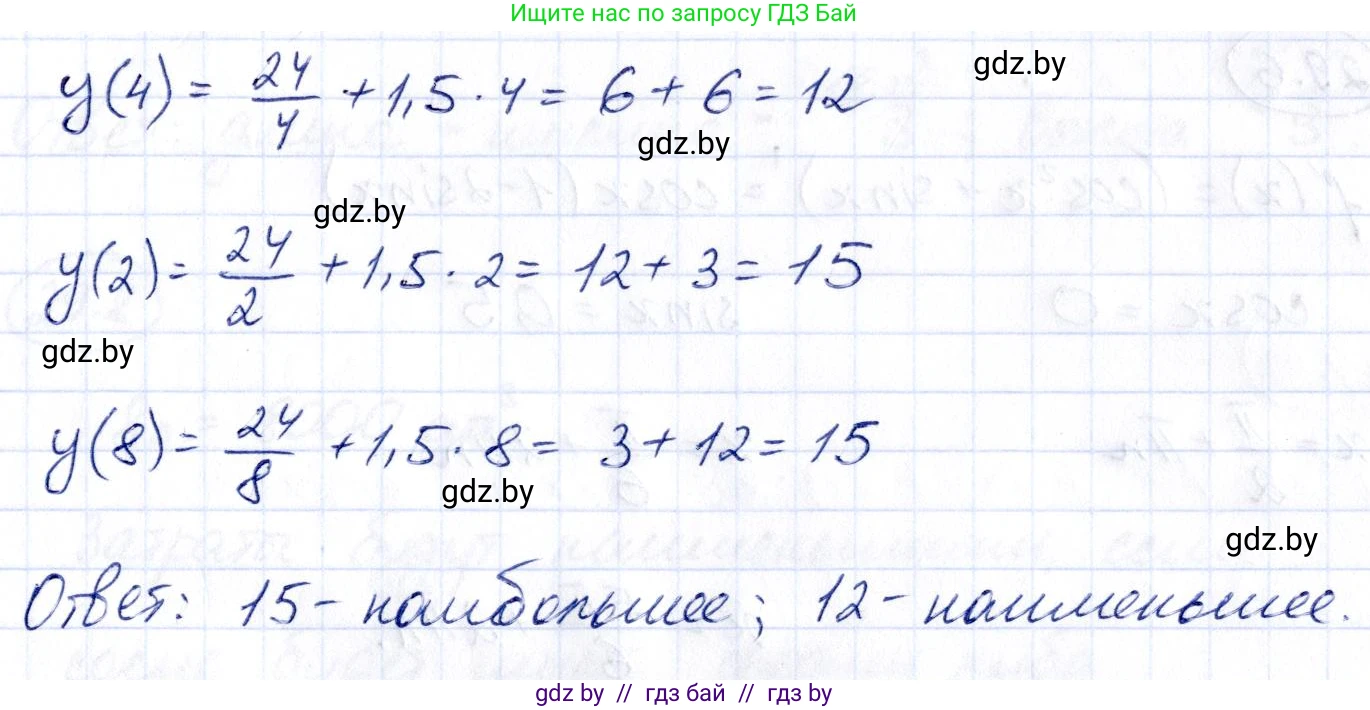 Ищите нас по запросу ГДЗ Бай
y(4) = 24/4 + 1,5 · 4 = 6 + 6 = 12
gdz.by
gdz.by
gdz.by
y(2) = 24/2 + 1,5 · 2 = 12 + 3 = 15
gdz.by
y(8) = 24/8 + 1,5 · 8 = 3 + 12 = 15
gdz.by
gdz.by
Ответ: 15 - наибольшее; 12 - наименьшее.
gdz by // гдз бай // гдз by